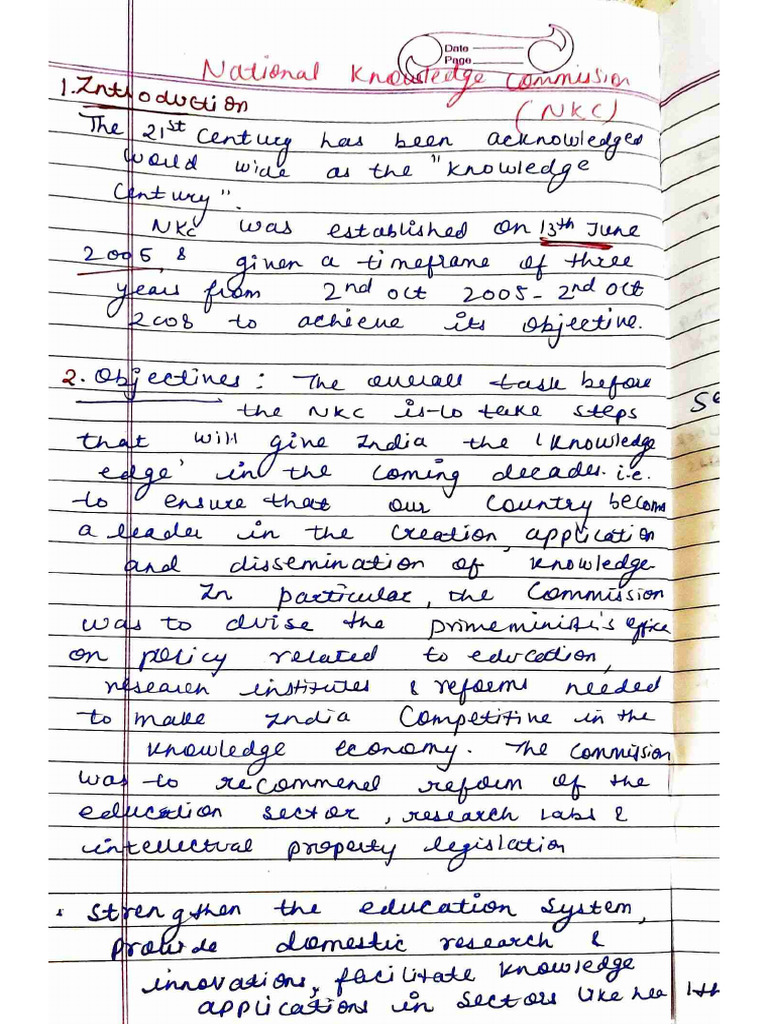 Date
Page
National Knowledge Commission
(NKC)
1. Introduction
The 21st Century has been acknowledges
world wide as the "Knowledge
Century".
NKC was established on 13th June
2005, & given a timeframe of three
years from 2nd Oct 2005 - 2nd Oct
2008 to achieve its objective.
2. Objectives : The overall task before
the NKC is to take steps
that will give India the 'Knowledge
edge' in the coming decades. i.e.
to ensure that our Country become
a leader in the creation, application
and dissemination of knowledge.
In particular, the Commission
was to dvise the primeministr's office
on policy related to education,
research institutes & reforms needed
to make India Competitive in the
knowledge economy. The commission
was to recommend reform of the
education sector, research labs &
intellectual property legislation
• strengthen the education system,
provide domestic research &
innovations, facilitate knowledge
applications in sectors like hea